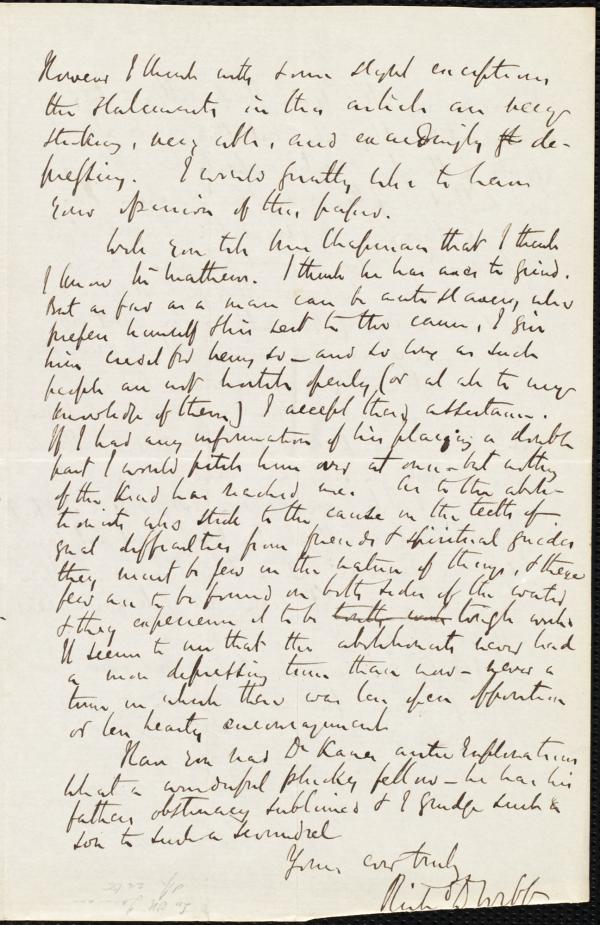 However I think with some slight exceptions
the statements in this article are very
striking, very able, and exceedingly de-
pressing. I would greatly like to have
your opinion of this paper.
Will you tell Mrs Chapman that I think
I know Mr Mathews. I think he has axes to grind.
But as far as a man can be anti slavery who
prefers himself & his sect to the cause, I give
him credit for being so – and so long as such
people are not hostile openly (or at all to my
knowledge of them) I accept their assistance.
If I had any information of his playing a double
part I would pitch him over at once – but nothing
of the kind has reached me. As to the aboli-
tionists who stick to the cause in the teeth of
great difficulties from friends & spiritual guides
they must be few in the nature of things, & these
few are to be found on both sides of the water
& they experience it to be tough work
It seems to me that the abolitionists never had
a more depressing time than now – never a
time in which there was less open opposition
or less hearty encouragement
Have you read Dr Kane's Arctic Explorations
What a wonderful plucky fellow – he has his
father's obstinacy sublimed & I grudge such a
son to such a scoundrel
Yours ever truly
Richd D Webb